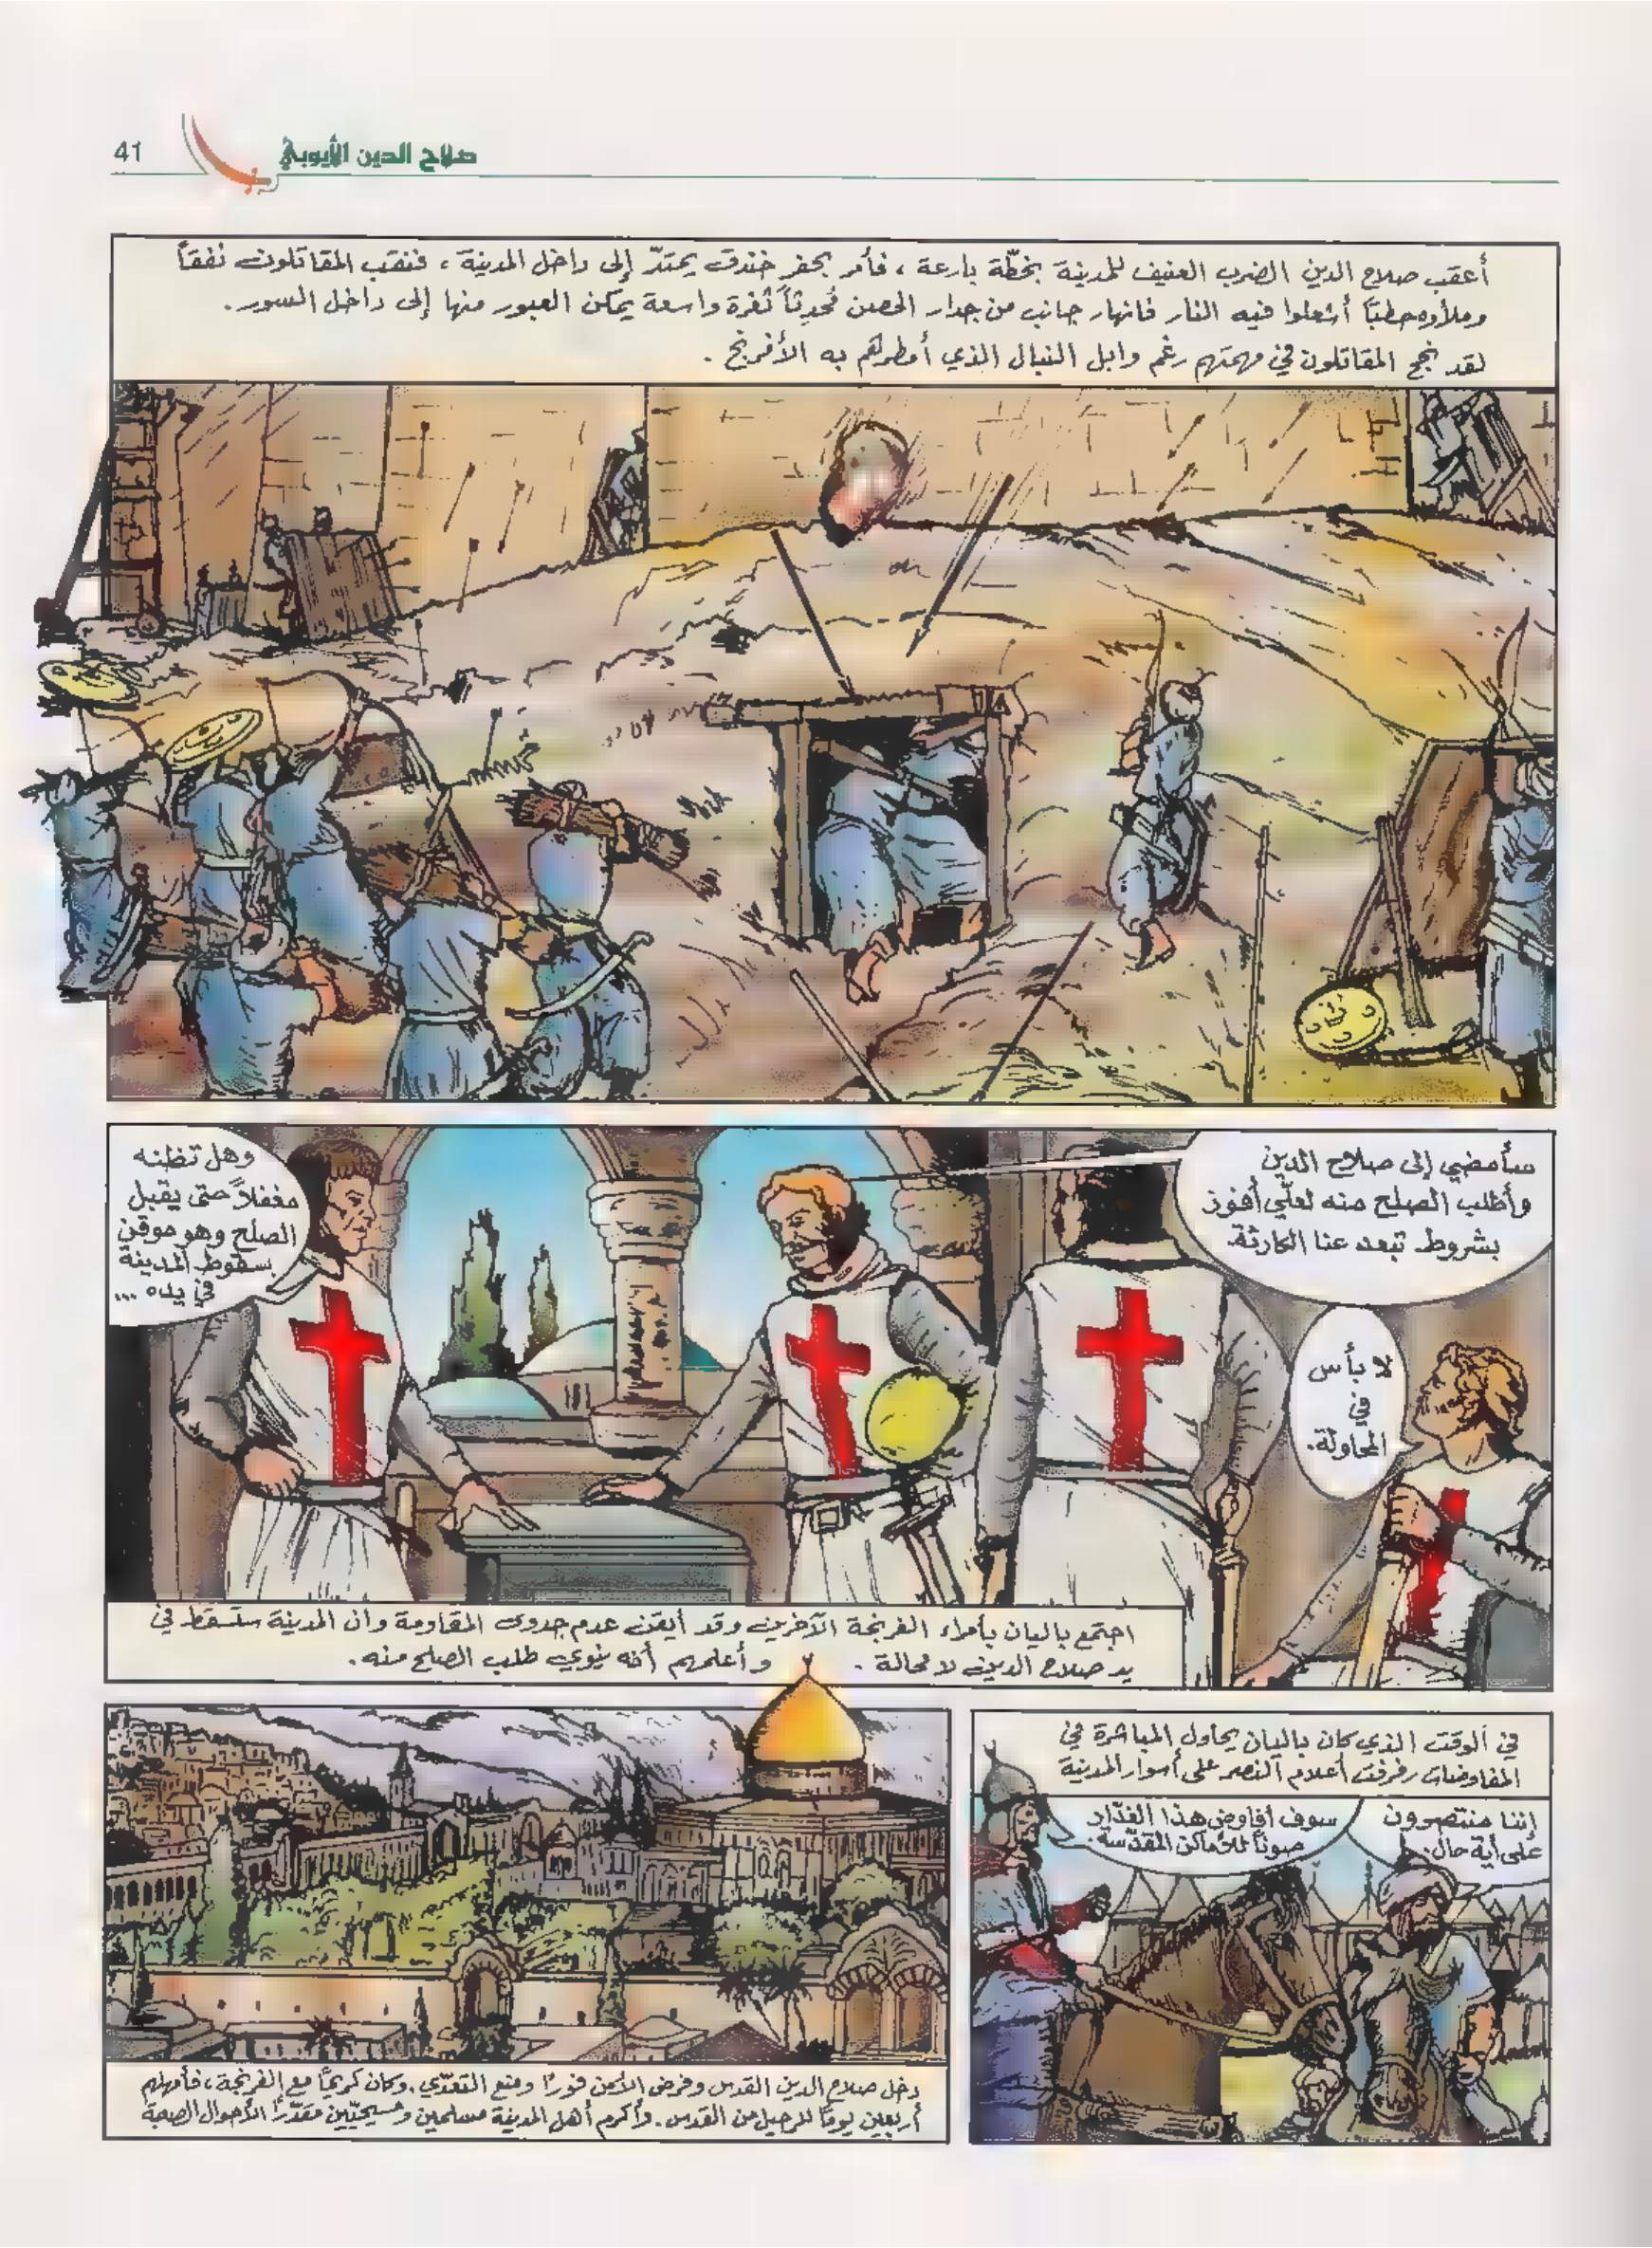 41
صلاح الدين الأيوبي
أعقب صلاح الدين الضرب العنيف للمدينة بخطّة بارعة ، فأمر بحفر خندق يمتدّ إلى داخل المدينة ، فنقب المقاتلون نفقاً
وملأوه حطباً أشعلوا فيه النار فانهار جانب من جدار الحصن مُحدِثاً ثغرة واسعة يمكن العبور منها إلى داخل السور .
لقد نجح المقاتلون في مهمتهم رغم وابل النبال الذي أمطرهم به الأفرنج .
سأمضي إلى صلاح الدين
وأطلب الصلح منه لعلّي أفوز
بشروط تبعد عنا الكارثة.
وهل تظنه
مغفلاً حتى يقبل
الصلح وهو موقن
بسقوط المدينة
في يده ...
لا بأس
في
المحاولة.
اجتمع باليان بأمراء الفرنجة الآخرين وقد أيقن عدم جدوى المقاومة وأن المدينة ستسقط في
يد صلاح الدين لا محالة . وأعلمهم أنه ينوي طلب الصلح منه .
في الوقت الذي كان باليان يحاول المباشرة في
المفاوضات رفرفت أعلام النصر على أسوار المدينة
إننا منتصرون
على أية حال.
سوف أفاوض هذا الغدّار
صوناً للأماكن المقدّسة.
دخل صلاح الدين القدس وفرض الأمن فوراً ومنع التعدّي . وكان كريماً مع الفرنجة ، فأمهلهم
أربعين يوماً للرحيل من القدس . وأكرم أهل المدينة مسلمين ومسيحيّين مقدّراً الأحوال الصعبة